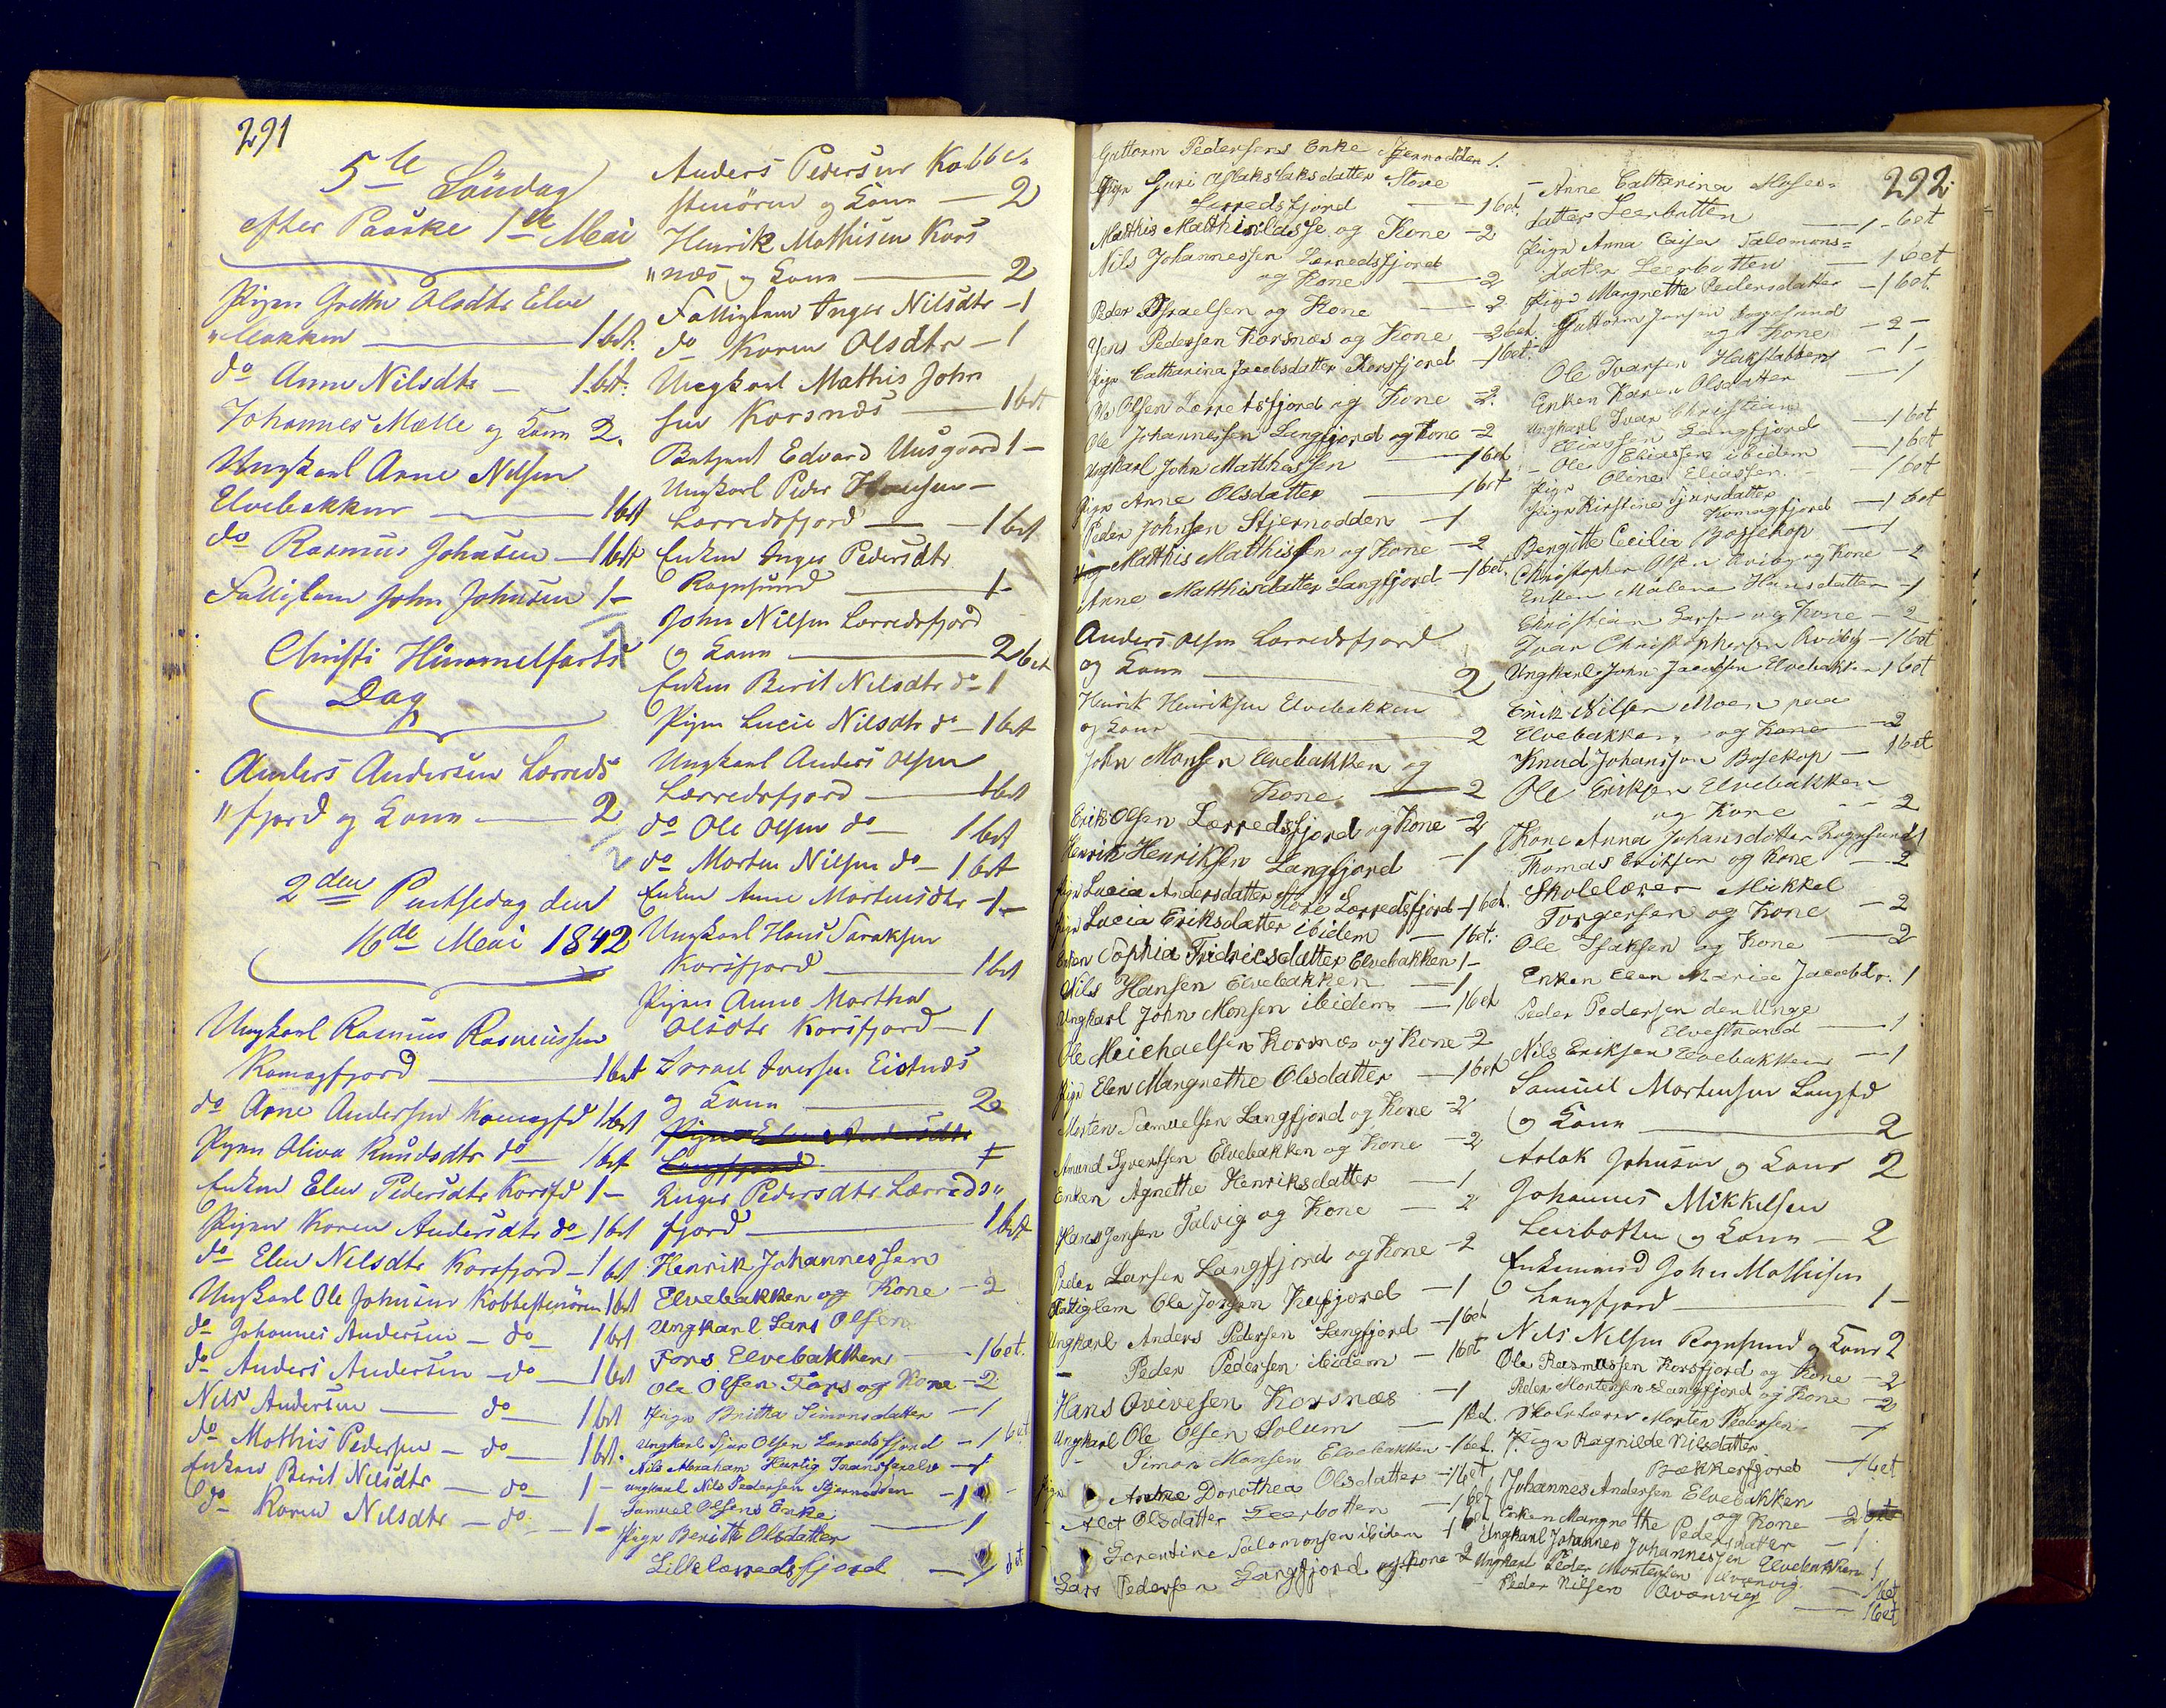 291
5te Søndag
efter Paaske 1ste Mai
Pigen Grethe Olsdtr Elve
"bakken — 1 bet.
do Anne Nilsdtr — 1 bet.
Johannes Mælle og Kone 2.
Ungkarl Arne Nilsen
Elvebakken — 1 bet
do Rasmus Johnsen — 1 bet
Fattiglem John Johnsen 1 —
Christi Himmelfarts
Dag
Anders Andersen Lerreds
"fjord og Kone — 2
2den Pintsedag den
16de Mai 1842
Ungkarl Rasmus Rasmussen
Komagfjord — 1 bet
do Arne Andersen Komagfd 1 bet
Pigen Oliva Knudsdtr do — 1 bet
Enken Elen Pedersdtr Korsfd 1 —
Pigen Karen Andersdtr do — 1 bet
do Elen Nilsdtr Korsfjord — 1 bet
Ungkarl Ole Johnsen Kobbestenören 1 bet
do Johannes Andersen — do — 1 bet
do Anders Andersen — do — 1 bet
Nils Andersen — do — 1 bet
do Mathis Pedersen — do — 1 bet.
Enken Berit Nilsdtr — do — 1 —
do Karen Nilsdtr — do — 1 —
Anders Pedersen Kobbe-
stenören og Kone — 2
Henrik Mathisen Kors
"næs og Kone — 2
Fattiglem Inger Nilsdtr — 1
do Karen Olsdtr — 1
Ungkarl Mathis John
sen Korsnæs — 1 bet
Betjent Edvard Uusgaard 1 —
Ungkarl Peder Hansen —
Lerredsfjord — 1 bet
Enken Inger Pedersdtr
Rognsund — 1 —
John Nilsen Lerredsfjord
og Kone — 2 bet
Enken Berit Nilsdtr do — 1
Pigen Lucie Nilsdtr do — 1 bet
Ungkarl Anders Olsen
Lerredsfjord — 1 bet
do Ole Olsen do — 1 bet
do Morten Nilsen do — 1 bet
Enken Anne Mortensdtr — 1 —
Ungkarl Hans Isaksen
Korsfjord — 1 bet
Pigen Anne Martha
Olsdtr Korsfjord — 1
Israel Iversen Eistnæs
og Kone — 2
Pigen Elen Andersdtr
Langfjord — 1
Inger Pedersdtr Lærreds"
fjord — 1 bet
Henrik Johannessen
Elvebakken og Kone — 2
Ungkarl Lars Olsen
Fors Elvebakken — 1 bet.
Ole Olsen Fors og Kone — 2
Pige Britha Simonsdatter — 1
Ungkarl Sjur Olsen Lerredsfjord — 1 bet.
Nils Abraham Hertig Tranfarelv — 1
Ungkarl Nils Pedersen Stjernodden — 1
Samuel Olsens Enke — 1
Pige Berithe Olsdatter
Lillelerredsfjord — 1 bet
292
Guttorm Pedersens Enke Stjernodden 1.
Pige Guri Aslakslaksdatter Store
Lerredsfjord — 1 bet.
Matthis Matthislasse og Kone — 2
Nils Johannessen Lerredsfjord
og Kone — 2
Peder Israelsen og Kone — 2
Jens Pedersen Korsnæs og Kone — 2 bet
Pige Catharina Jacobsdatter Korsfjord — 1 bet.
Ole Olsen Lerretsfjord og Kone — 2.
Ole Johannessen Langfjord og Kone — 2
Ungkarl John Matthissen — 1 bet
Pige Anne Olsdatter — 1 bet
Peder Johnsen Stjernodden — 1
Matthis Matthissen og Kone — 2
Anne Matthisdatter Langfjord — 1 bet.
Anders Olsen Lerredsfjord
og Kone — 2
Henrik Henriksen Elvebakken
og Kone — 2
John Monsen Elvebakken og
Kone — 2
Erik Olsen Lerredsfjord og Kone — 2
Henrik Henriksen Langfjord — 1
Pige Lucia Andersdatter Store Lerredsfjord — 1 bet.
Pige Lucia Eriksdatter ibidem — 1 bet.
Enken Sophia Fridricsdatter Elvebakken 1 —
Nils Hansen Elvebakken — 1
Ungkarl John Monsen ibidem — 1 bet
Ole Meichaelsen Korsnæs og Kone — 2
Pige Elen Mangnethe Olsdatter — 1 bet
Morten Samuelsen Langfjord og Kone — 2
Amund Syvertsen Elvebakken og Kone — 2
Enken Agnethe Henriksdatter — 1
Hans Jensen Talvig og Kone — 2
Peder Larsen Langfjord og Kone — 2
Fattiglem Ole Jorgen Kufjord — 1
Ungkarl Anders Pedersen Langfjord — 1 bet
— Peder Pedersen ibidem — 1 bet
Hans Qvivesen Korsnæs — 1
Ungkarl Ole Olsen Solum — 1 bet.
Simon Monsen Elvebakken — 1 bet.
Pige Anne Dorothea Olsdatter — 1 bet
Alet Olsdatter Leerbotten — 1 bet
Lorentine Salomonsen ibidem 1 bet
Lars Pedersen Langfjord og Kone 2
— Anne Catharina Moses=
datter Leerbotten — 1 — bet
Pige Anna Caisa Salomons=
datter Leerbotten — 1 bet
Pige Mangnethe Pedersdatter — 1 bet.
Guttorm Jonsen
og Kone — 2 —
Ole Ivarsen Hakstabben — 1 —
Enken Karen Olsdatter — 1
Ungkarl Ivar Christian
Eliassen Langfjord — 1 bet
— Ole Eliassen ibidem — 1 bet
Pige Oline Eliassen. — 1 bet
Pige Kirstine Sjursdatter
Komagfjord — 1 bet
Bergitte Cecilia Bossekop — 1
Christopher Olsen Qviby og Kone — 2
Enken Malena Hansdatter — 1
Christian Larsen og Kone — 2
Ivar Christophersen Qviby — 1 bet
Ungkarl John Jacobsen Elvebakken 1 bet
Erik Nilsen Moen paa
Elvebakken og Kone — 2
Knud Johanson Bosekop — 1 bet
Ole Eriksen Elvebakken
og Kone — 2
Kone Anna Johansdatter Rognsund 1
Thomas Eriksen og Kone — 2
Skolelærer Mikkel
Torgersen og Kone — 2
Ole Isaksen og Kone — 2
Enken Elen Maria Jacobdr. 1
Peder Pedersen den Unge
Elvestrand — 1
Nils Eriksen Elvebakken — 1
Samuel Mortensen Langfd
og Kone — 2
Aslak Johnsen og Kone 2
Johannes Mikkelsen
Leirbotten og Kone — 2
Enkemand John Mathisen
Langfjord — 1 —
Nils Nilsen Rognsund og Kone 2
Ole Rasmussen Korsfjord og Kone — 2
Peder Mortensen Langfjord og Kone — 2
Skolelærer Morten Pedersen — 1
Pige Ragnilde Nilsdatter
Bækkerfjord — 1 bet
Johannes Andersen Elvebakken
og Kone — 2
Enken Mangnethe Pedersdatter — 1
Ungkarl Johannes Johannessen Elvebakken 1
Ungkarl Peder Mortensen Qvænvig — 1 bet
— Peder Nilsen Qvænvig — 1 bet